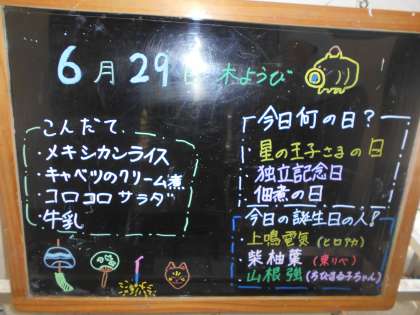 6月29日 木ようび
こんだて
・メキシカンライス
・キャベツのクリーム煮
・コロコロサラダ
・牛乳
今日何の日？
・星の王子さまの日
独立記念日
佃煮の日
今日の誕生日の人！
上鳴電気（ヒロアカ）
柴柚葉（東リベ）
山根強（ちびまる子ちゃん）